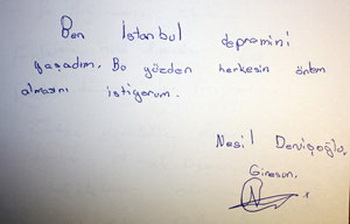 Ben İstanbul depremini
yaşadım. Bu yüzden herkesin önlem
almasını istiyorum.
Nesil Dervişoğlu,
Giresun,